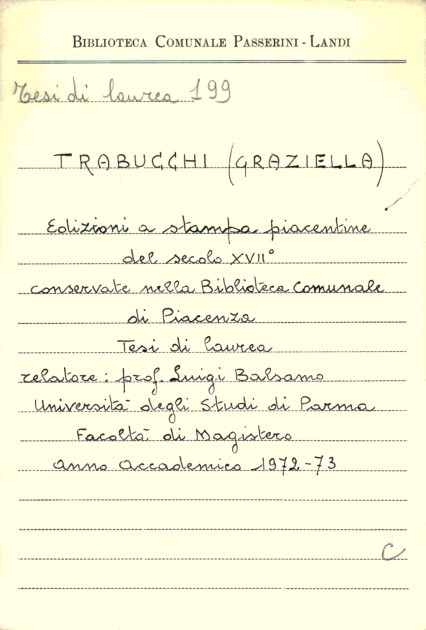 BIBLIOTECA COMUNALE PASSERINI - LANDI
Tesi di laurea 199
TRABUCCHI (GRAZIELLA)
Edizioni a stampa piacentine
del secolo XVII°
conservate nella Biblioteca Comunale
di Piacenza
Tesi di laurea
relatore: prof. Luigi Balsamo
Università degli Studi di Parma
Facoltà di Magistero
anno accademico 1972-73
C